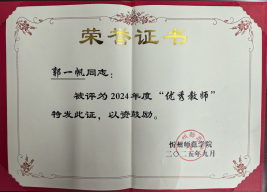 荣誉证书
郭一帆同志：
被评为2024年度“优秀教师”
特发此证，以资鼓励。
忻州师范学院
二〇二五年九月